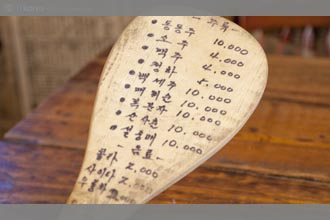 - 주류 -
동동주 10.000
• 소주 4.000
• 맥주 4.000
• 청하 5.000
• 백세주 10.000
• 매취순 10.000
• 복분자 10.000
• 산사춘 10.000
• 설중매 10.000
- 음료 -
콜라 2.000
사이다 2.000